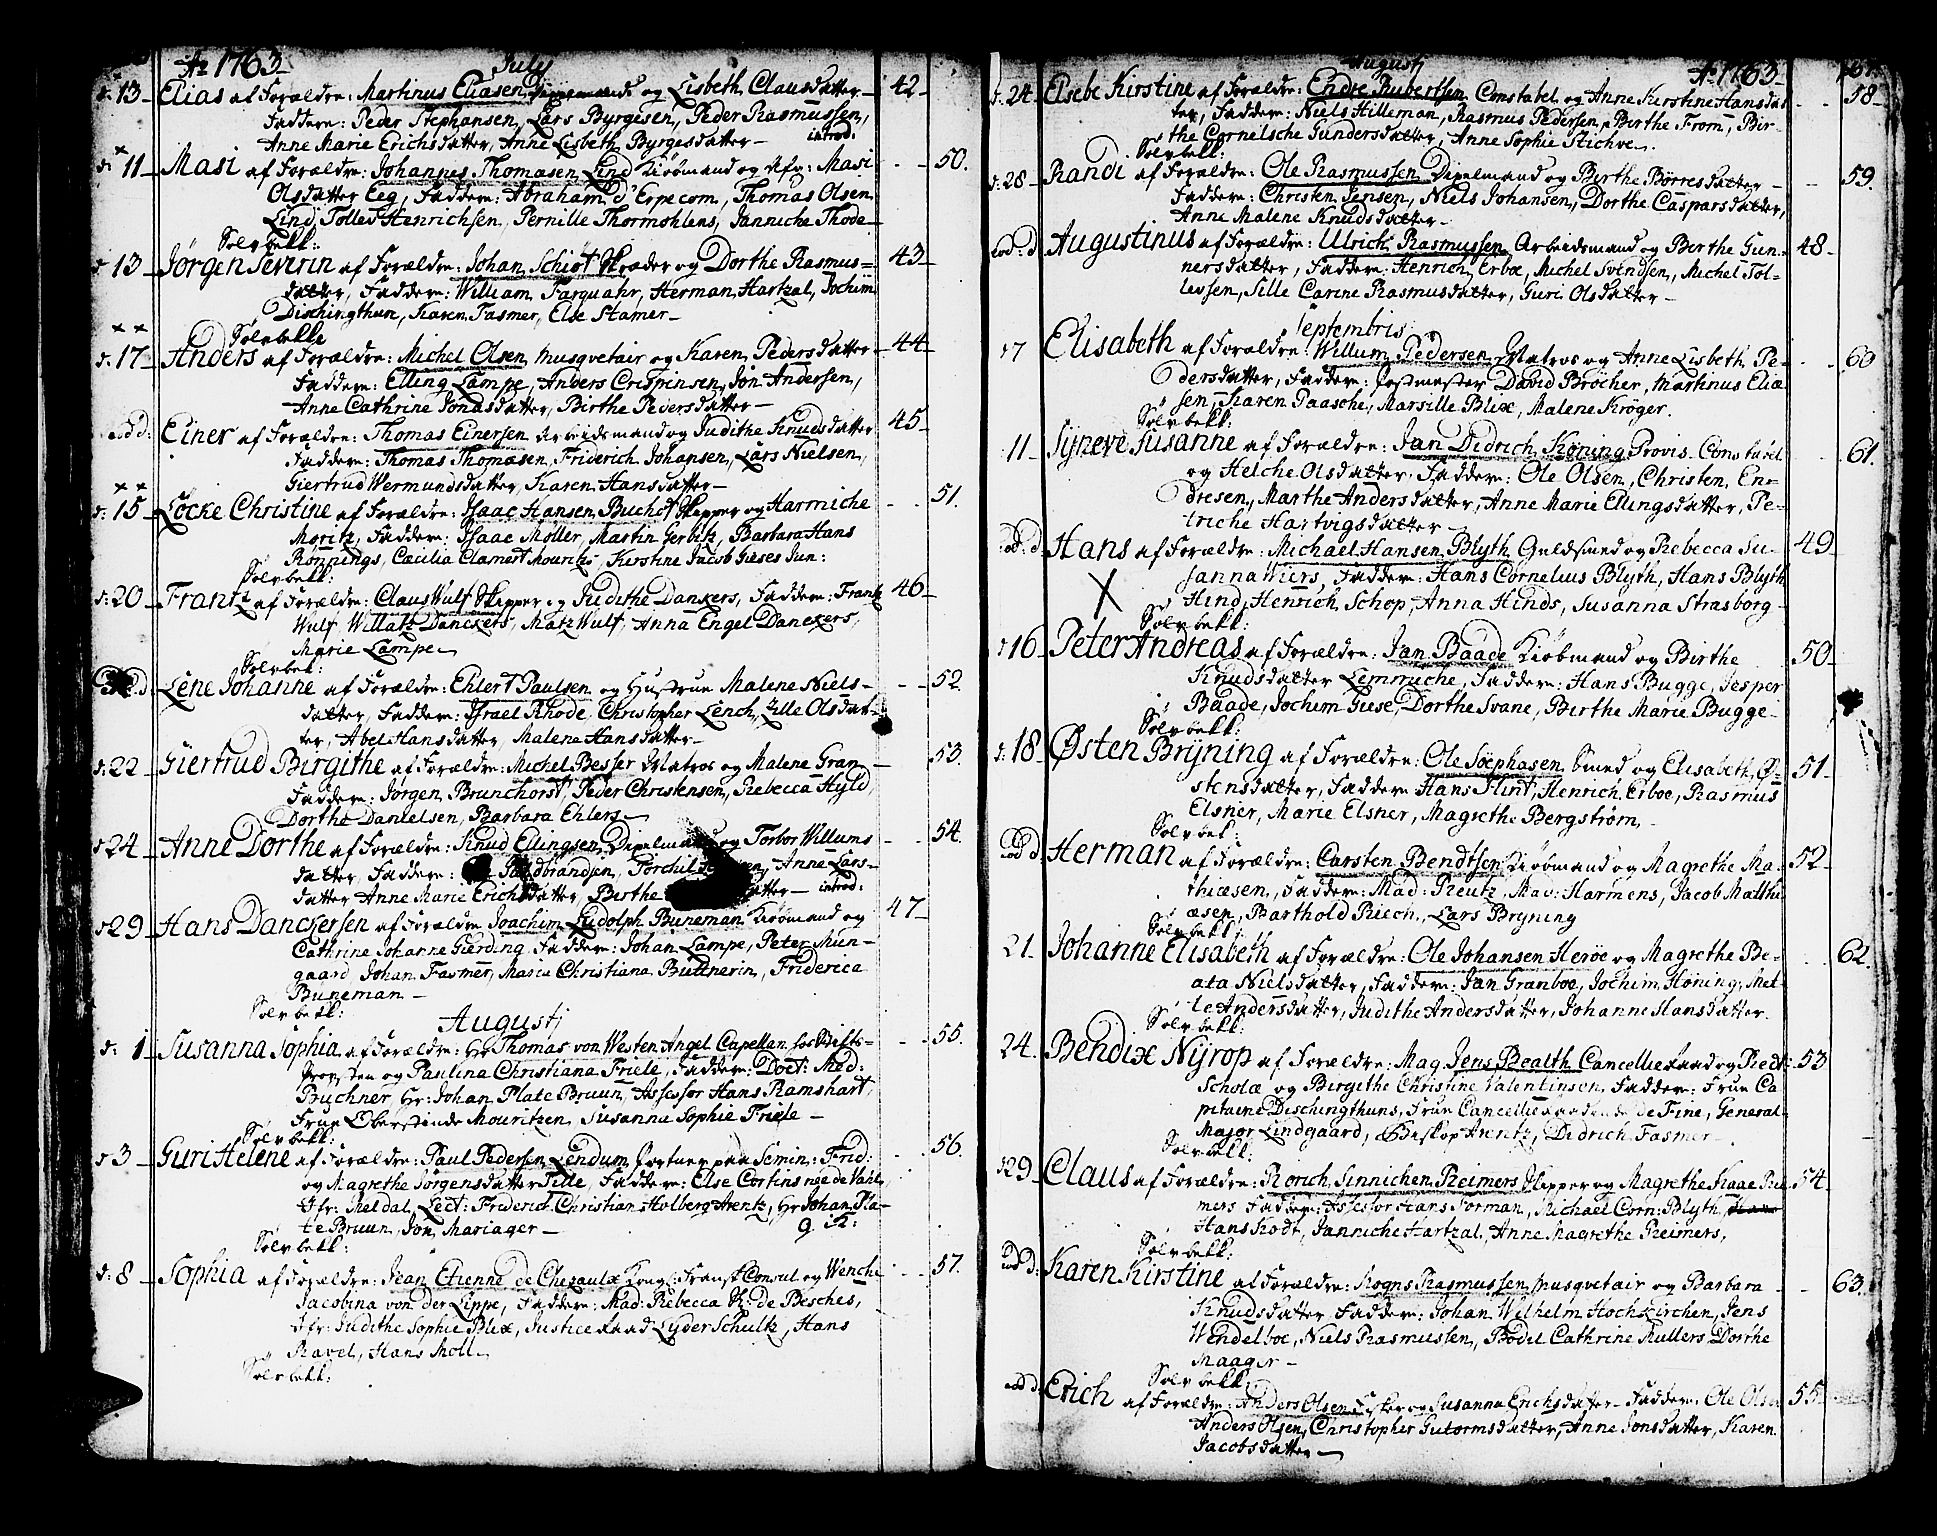 Ao 1763 July
d: 13 Elias af Forældre: Martinus Eliasen Dipelmand og Lisbeth Clausdatter 42
Faddere: Peder Stephansen, Lars Byrgesen, Peder Rasmussen,
Anne Marie Erichsdatter, Anne Lisbeth Byrgesdatter introd:
d: 11 Masi af Forældre: Johannes Thomasen Lind Kiøbmand og Hfr: Masi 50.
Olsdatter Eeg, Faddere: Abraham d'Erpecom, Thomas Olsen
Lind, Tollev Henrichsen, Pernille Thormøhlens, Janniche Thode
Sølvbekk:
d 13 Jørgen Severin af Forældre: Johan Schiøt Skræder og Dorthe Rasmus= 43
datter, Faddere: William Farquahr, Herman Hartzal, Jochim
Dischingthun, Karen Fasmer, Else Stamer
Sølvbekk
d: 17 Anders af Forældre: Michel Olsen Musqvetair og Karen Pedersdatter 44
Faddere: Elling Lampe, Anders Crispinsen, Jon Andersen,
Anne Cathrine Jonasdatter, Birthe Pedersdatter
eod d: Einer af Forældre: Thomas Einersen Arbeidsmand og Judithe Knudsdatter 45
Faddere: Thomas Thomæsen, Friderich Johansen, Lars Nielsen,
Giertrud Wermundsdatter, Karen Hansdatter
d: 15 Locke Christine af Forældre: Isaac Hansen Bucht Skipper og Harmiche 51.
Moritz, Faddere: Isaac Møller, Martin Gerbitz, Barbara Hans
Rønnings, Cæcilia Clamert Mouritz, Kirstine Jacob Gieses Jun:
Sølvbekk:
d: 20 Frantz af Forældre: Claus Wulf Skipper og Judithe Danxers, Faddere: Frantz 46
Wulf, Willatz Danckers, Matz Wulf, Anna Engel Danckers,
Marie Lampe
Sølvbek:
eod d Lene Johanne af Forældre: Ehlert Paulsen og Hustrue Malene Niels= 52
datter, Faddere: Israel Rhode, Christopher Lench, Lille Olsdat=
ter, Abel Hansdatter, Malene Hansdatter
d: 22 Giertrud Birgithe af Forældre: Michel Besser Matros og Malene Gran 53.
Faddere: Jørgen Brunchorst, Peder Christensen, Rebecca Hyld,
Dorthe Danielsen, Barbara Ehlers
d 24 Anne Dorthe af Forældre: Knud Ellingsen Dipelmand og Torbor Willums 54.
datter, Faddere: Guldbrandsen, Torchil Anne Lars=
datter Anne Marie Erichsdatter, Birthe introd:
d 29 Hans Danckersen af Forældre Joachim Ludolph Buneman Kiøbmand og 47
Cathrine Johanne Gierding, Faddere: Johan Lampe, Peter Mun=
gaard Johan Fasmer, Maria Christiana Buttnerin, Friderica
Buneman
Sølvbekk:
Augustj
d: 1 Susanna Sophia af Forældre: Hr Thomas von Westen Angel Capellan hos Stifts= 55.
Provsten og Paulina Christiana Friele, Faddere: Doct: Mad:
Buchner, Hr: Johan Plate Bruun, Assessor Hans Ramshart,
Frue Oberstinde Mouritzen, Susanna Sophie Friele
Sølvbekk:
d 3 Guri Helene af Forældre: Paul Pedersen Lendum Portner paa Semin: Frid: 56.
og Magrethe Jørgensdatter Tille, Faddere: Else Cortsins née de Vahl,
Jfr: Meldal, Lect: Friderich Christian Holberg Arentz, Hr Johan Pla=
te Bruun, Jon Mariager
Sølvbekk:
d: 8 Sophia af Forældre: Jean Etienne de Chezaulx Kongl: Fransk Consul og Wenche 57.
Jacobina von der Lippe, Faddere: Mad: Rebecca de Besches,
Jfr: Judithe Sophie Blix, Justice Raad Lyder Schultz, Hans
Ravel, Hans Moll
Sølvbekk:
Augustj Ao 1763
d. 24 Elsebe Kirstine af Forældre: Endre Rubertsen Constabel og Anne Kirstine Hansdat= 58
ter, Faddere: Niels Hilleman, Rasmus Pedersen, Birthe From, Bir=
the Cornelsche Gundersdatter, Anne Sophie Stichve
Sølvbekk:
d. 28 Randi af Forældre: Ole Rasmussen Dipelmand og Birthe Børresdatter 59.
Faddere: Christen Jensen, Niels Johansen, Dorthe Caspersdatter,
Anne Malene Knudsdatter
eod: d Augustinus af Forældre: Ulrich Rasmussen Arbeidsmand og Berthe Gun= 48
nersdatter, Faddere: Henrich Erboe, Michel Svendsen, Michel Tol=
levsen, Sille Carine Rasmusdatter, Guri Olsdatter
Septembris
d 7 Elisabeth af Forældre: Willum Pedersen Matros og Anne Lisbeth Pe= 60
dersdatter, Faddere: Postmester David Brøcher, Martinus Elia
sen, Karen Paasche, Marsille Blix, Malene Krøger.
Sølvbekk:
11 Syneve Susanne af Forældre: Jan Didrich Køning Provis. Constabel 61.
og Helche Olsdatter, Faddere: Ole Olsen, Christen En=
dresen, Marthe Andersdatter, Anne Marie Ellingsdatter, Pe=
triche Hartvigsdatter
eod: d Hans af Forældre: Michael Hansen Blyth Guldsmed og Rebecca Su= 49
sanna Wiers, Faddere: Hans Cornelius Blyth, Hans Blyth
Hind, Henrich Schop, Anna Hinds, Susanna Strasborg
Sølvbekk:
d 16 Peter Andreas af Forældre: Jan Baade Kiøbmand og Birthe 50
Knudsdatter Lemmiche, Faddere: Hans Bugge, Jesper
Baade, Jochim Giese, Dorthe Svane, Birthe Marie Bugge
Sølvbekk:
d: 18 Østen Bryning af Forældre: Ole Søephasen Smed og Elisabeth Ø= 51
stensdatter, Faddere Hans Flint, Henrich Erboe, Rasmus
Elsner, Marie Elsner, Magrethe Bergstrøm,
Sølvbek:
eod d Herman af Forældre: Carsten Bendtsen Kiøbmand og Magrethe Ma= 52
thiæsen, Faddere: Mad: Reutz, Mad: Harmens, Jacob Matthi
æsen, Barthold Riech, Lars Bryning
Sølvbekk:
21 Johanne Elisabeth af Forældre: Ole Johansen Herøe og Magrethe Be= 62.
ata Nielsdatter, Faddere: Jan Granboe, Jochim Høning, Met=
te Andersdatter, Judithe Andersdatter, Johanne Hansdatter.
Sølvbekk:
24. Bendix Nyrop af Forældre: Mag Jens Bealth Cancellie Raad og Rect: 53
Scholæ og Birgethe Christine Valentinsen, Faddere: Frue Ca
pitaine Dischingthuns, Frue Cancellieraadinde de Fine, General
Major Lindgaard, Biskop Arentz, Didrich Fasmer
Sølvbekk:
d 29 Claus af Forældre: Rorich Sinnichen Reimers Skipper og Magrethe Kaae Rei 54
mers Faddere: Assessor Hans Forman, Michael Corn: Blyth,
Hans Rodt, Janniche Hartzal, Anne Magrethe Reimers,
Sølvbekk:
eod d: Karen Kirstine af Forældre: Mogns Rasmussen Musqvetair og Barbara 63.
Knudsdatter Faddere: Johan Wilhelm Hochkirchen, Jens
Wendelboe, Niels Rasmussen, Bodel Cathrine Kullers Dorthe
Maager
Sølvbekk:
eod d: Erich af Forældre: Anders Olsen Fisker og Susanna Erichsdatter Faddere: Ole Olsen 55
Anders Olsen, Christopher Gutormsdatter, Anne Jonsdatter, Karen
Jacobsdatter